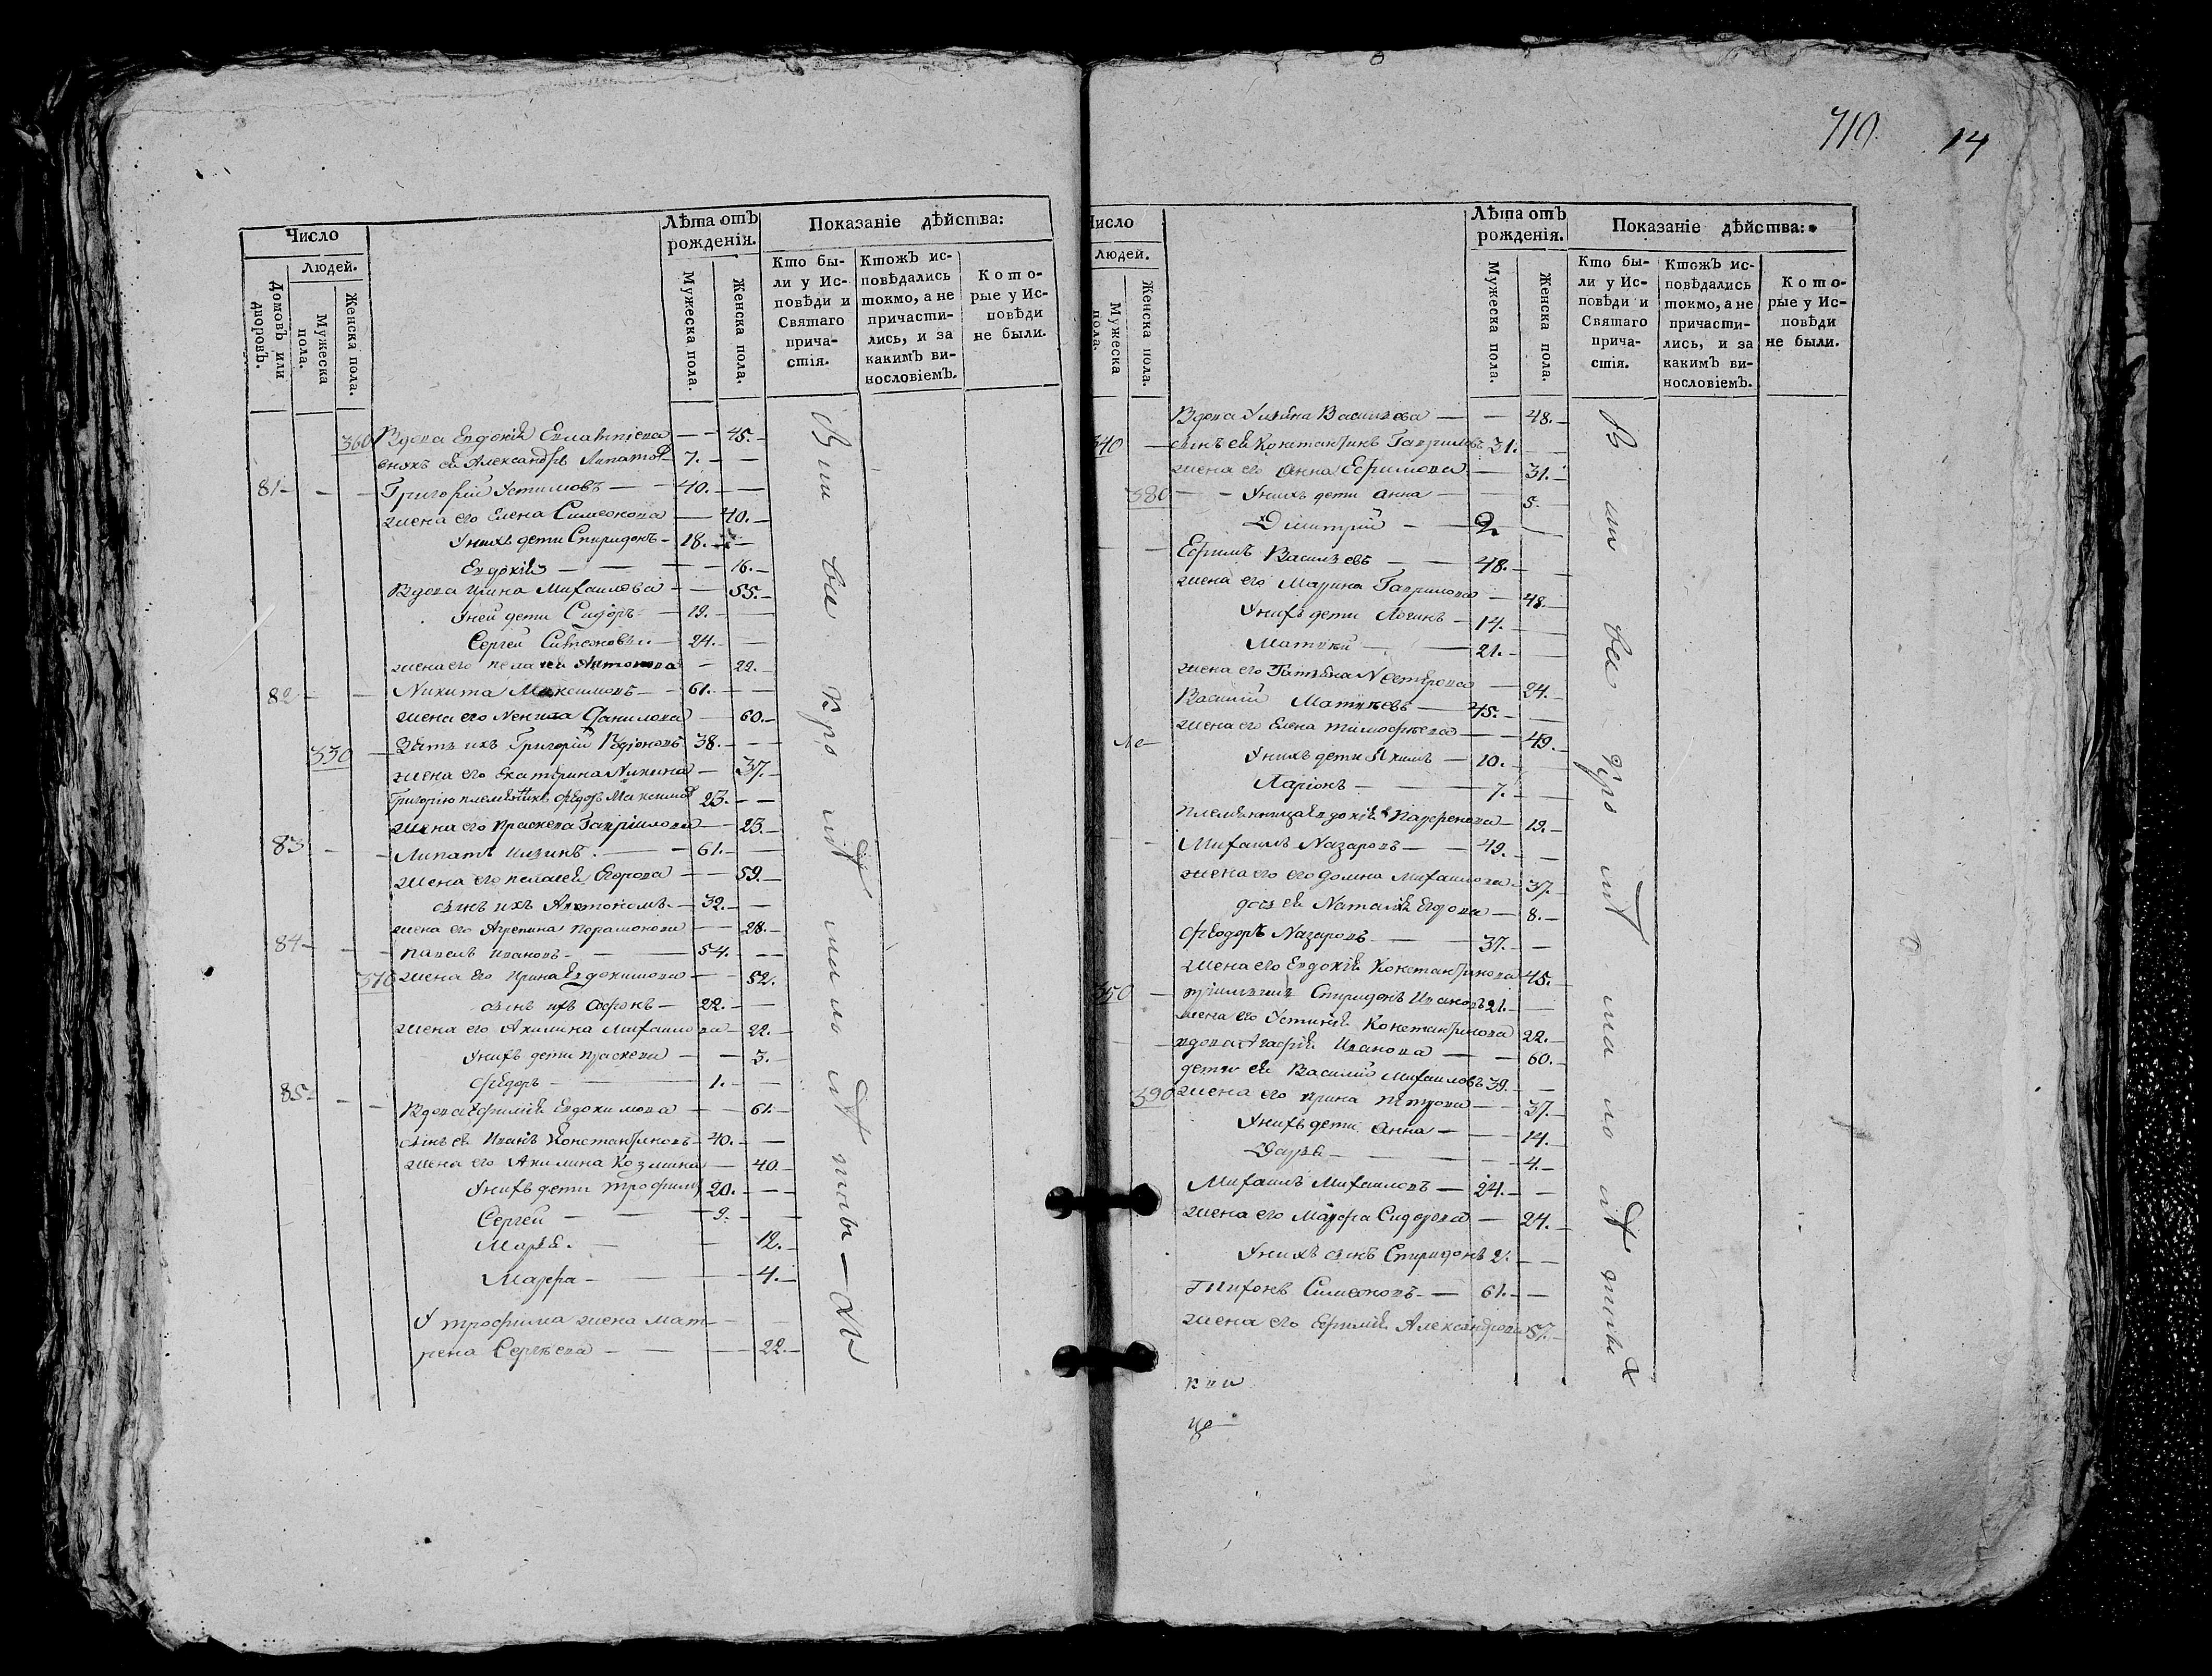 Число
Людей.
Домовъ или дворовъ.
Мужеска пола.
Женска пола.
Лѣта отъ рожденія.
Мужеска пола.
Женска пола.
Показаніе дѣйства:
Кто бы-
ли у Ис-
повѣди и
Святаго
прича-
стія.
Ктожъ ис-
повѣдались
токмо, а не
причасти-
лись, и за
какимъ ви-
нословіемъ.
Кото-
рые у Ис-
повѣди
не были.
360 Вдова Евдокія — — 45. —
ея Александръ Липатов 7. — —
81 — — — Григорій Устимовъ — — 40. — —
жена его Елена Симеонова — 40. —
У нихъ дети Спиридонъ — 18. — —
Евдокія — — — — 16. —
Вдова Ирина Михаилова — — 55. —
У ней дети Сидоръ — 19. — —
Сергей Симеоновы — 24. — —
жена его Пелагея Антонова — 22. —
82 — — Никита Максимовъ — 61. — —
жена его Данилова — 60. —
330 — Зять ихъ Григорій Родіоновъ 38. — —
жена его Екатерина Никина — 37. —
Григорію племянникъ Федоръ Максимов 23. — —
жена его Праскева Гавріилова — 23. —
83 — — Липатъ — 61. — —
жена его Пелагея Егорова — — 59. —
сынъ ихъ Автономъ — 32. — —
жена его Агрепина Парамонова — 28. —
84 — — — Павелъ Ивановъ — — 54. — —
370 жена его Ирина Евдокимова — — 52.
сынъ ихъ Софонъ — 22. — —
жена его Акилина Михаилова — 22. —
У нихъ дети Праскева — — 3. —
Федоръ — — 1. — —
85 — — — Вдова Ефимія Евдокимова — — 61. —
сынъ ея Иванъ Константиновъ — 40. — —
жена его Акилина Козмина — 40. —
У нихъ дети Трофимъ 20. — —
Сергей — — 9. — —
Марья — — — 12. —
Марфа — — — 4. —
У Трофима жена Мат-
рена Сергѣева — — — 22. —
710. 14
Число
Людей.
Мужеска пола.
Женска пола.
Лѣта отъ рожденія.
Мужеска пола.
Женска пола.
Показаніе дѣйства:
Кто бы-
ли у Ис-
повѣди и
Святаго
прича-
стія.
Ктожъ ис-
повѣдались
токмо, а не
причасти-
лись, и за
какимъ ви-
нословіемъ.
Кото-
рые у Ис-
повѣди
не были.
Вдова Ульяна Васильева — — 48. —
340 — сынъ ея Константинъ Гавриловъ 31. — —
жена его Анна Ефимова — — 31. —
380 — — У нихъ дети Анна — — 5. —
Димитрій — — 2. —
— — Ефимъ Васильевъ — — 48. — —
жена его Марина Гаврилова — 48. —
У нихъ дети Логинъ — 14. — —
Матвей — — 21. — —
жена его Татьяна Нестерова — 24. —
Василій Матвѣевъ — 45. — —
жена его Елена Тимофѣева — — 49. —
У нихъ дети Якимъ — 10. — —
Ларіонъ — — 7. — —
Племянница Евдокія Парфенова — 19. —
— Михаилъ Назаровъ — — 49. — —
жена его Михаилова — 37. —
дочь ея Наталья — 8. —
Феодоръ Назаровъ — — 37. — —
жена его Евдокія Константинова 45. —
350 — Спиридонъ Ивановъ 21. — —
жена его Устинія Константинова 22. —
вдова Агафія Иванова — — 60. —
дети ея Василій Михаиловъ 39. — —
390 жена его Ирина Петрова — — 37. —
У нихъ дети Анна — — 14. —
Дарья — — — 4. —
Михаилъ Михаиловъ — 24. — —
жена его Марфа Сидорова — 24. —
У нихъ сынъ Спиридонъ 2. — —
Тихонъ Симеоновъ — — 61. — —
жена его Ефимія Александрова 57. —